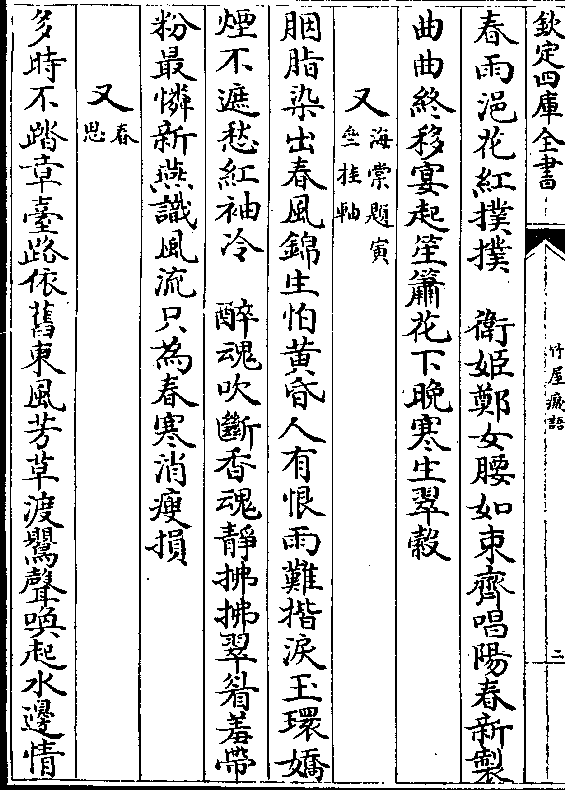 欽定四庫全書
竹屋癡語
二
春雨浥花紅撲撲　衛姬鄭女腰如束齊唱陽春新製
曲曲終移宴起笙簫花下晚寒生翠縠
又
海棠題寅
亝挂軸
胭脂染出春風錦生怕黃昏人有恨雨難揩淚玉環嬌
煙不遮愁紅袖冷　醉魂吹斷香魂靜拂拂翠眉羞帶
粉最憐新燕識風流只為春寒消瘦損
又
春
思
多時不踏章臺路依舊東風芳草渡鶯聲喚起水邊情